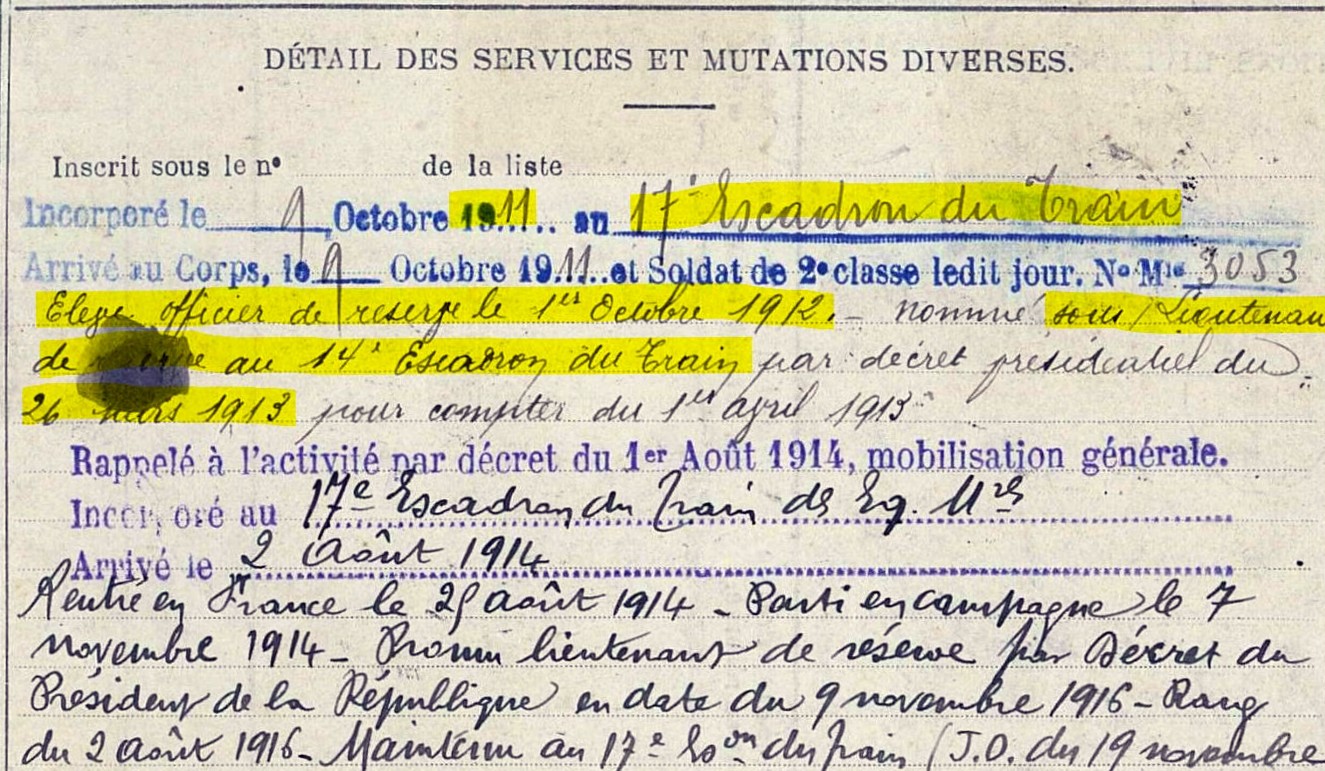 DÉTAIL DES SERVICES ET MUTATIONS DIVERSES.
Inscrit sous le nº de la liste
Incorporé le 9 Octobre 1911 au 17e Escadron du Train
Arrivé au Corps, le 9 Octobre 1911 et Soldat de 2e classe ledit jour. No Mle 3053
Eleve officier de reserve le 1er Octobre 1912. – nommé sous/Lieutenan
de au 14e Escadron du Train par décret présidentiel du
26 mars 1913 pour compter du 1er avril 1913
Rappelé à l'activité par décret du 1er Août 1914, mobilisation générale.
Incorporé au 17e Escadron du Train des Eq. Mres
Arrivé le 2 Août 1914
Rentré en France le août 1914 – Parti en campagne le 7
novembre 1914 – Promu lieutenant de réserve par Décret du
Président de la République en date du 9 novembre 1916 – Rang
du 2 août 1916 – Maintenu au 17e Eson du train (J.O. du 19 novembre